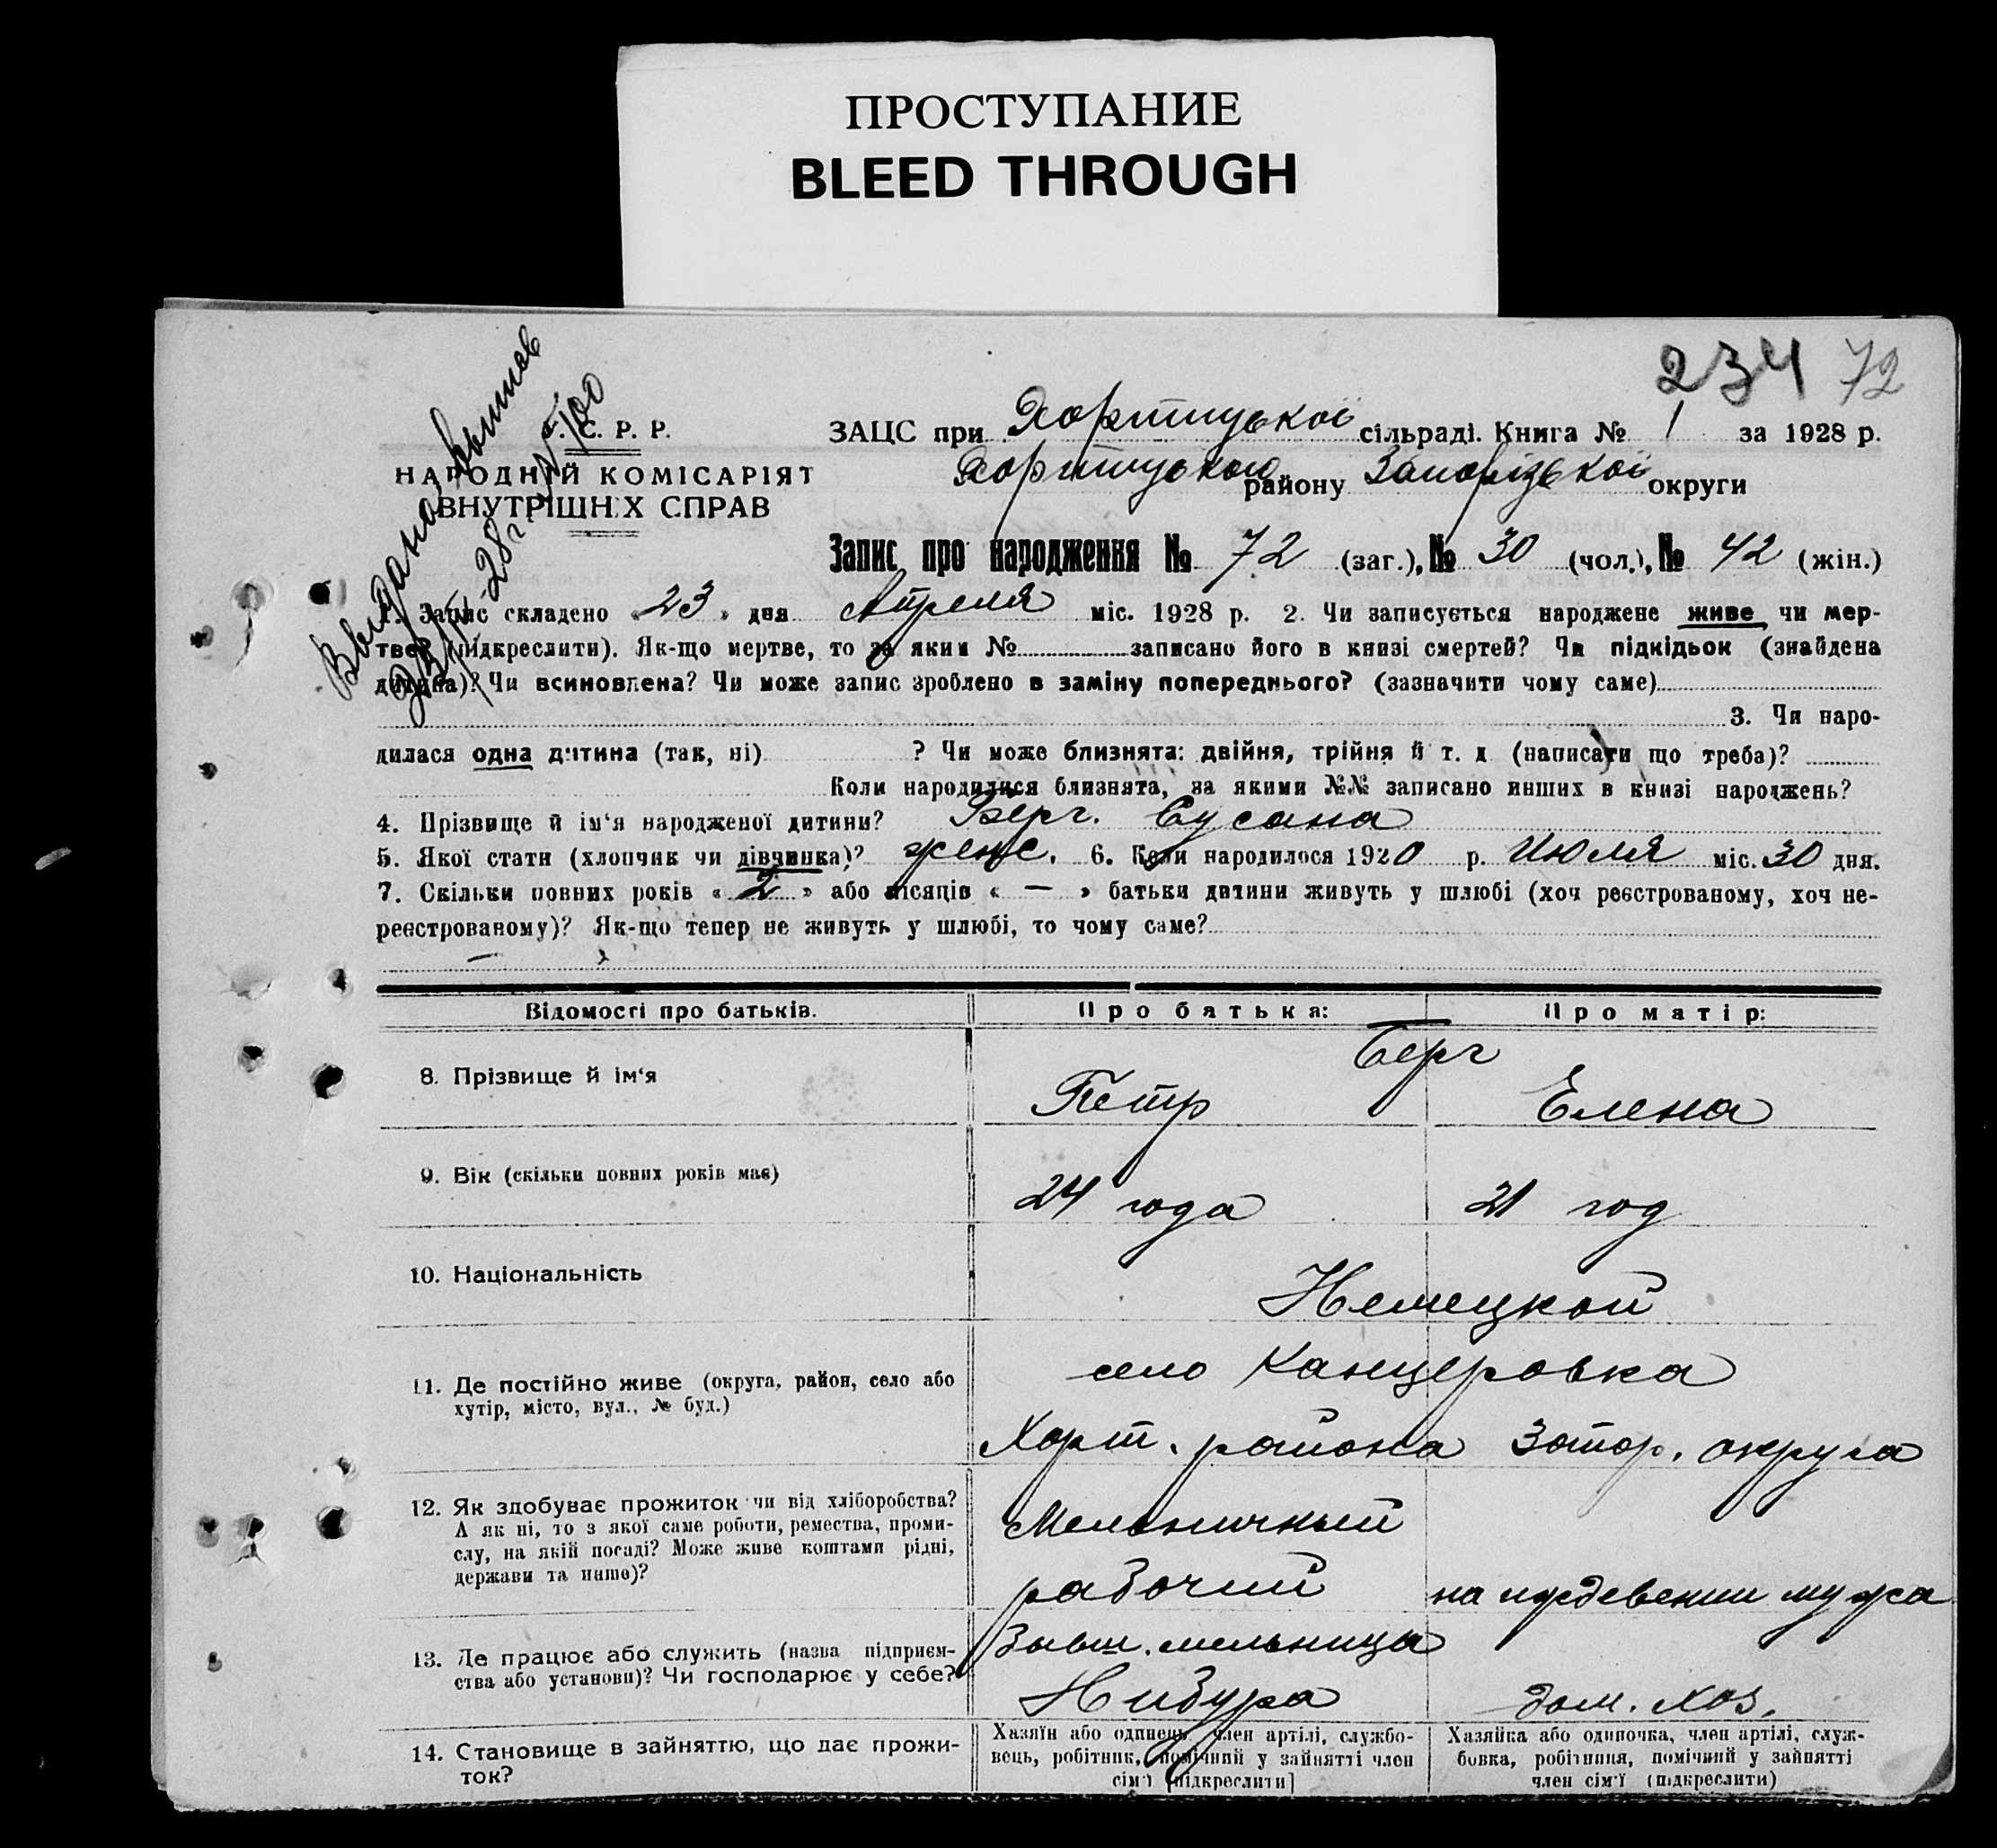 ПРОСТУПАНИЕ
BLEED THROUGH
234 72
Выдана выпись
28 г. № 100
С. Р. Р.
НАРОДНІЙ КОМІСАРІЯТ
ВНУТРІШНІХ СПРАВ
ЗАЦС при Хортицької сільраді. Книга № 1 за 1928 р.
Хортицького району Запорізької округи
Запис про народження № 72 (заг.), № 30 (чол.), № 42 (жін.)
1. Запис складено „23" дня Апреля міс. 1928 р. 2. Чи записується народжене живе чи мер-
тве (підкреслити). Як-що мертве, то за яким № записано його в книзі смертей? Чи підкідьок (знайдена
дитина)? Чи всиновлена? Чи може запис зроблено в заміну попереднього? (зазначити чому саме)
3. Чи наро-
дилася одна дитина (так, ні) ? Чи може близнята: двійня, трійня й т. д (написати що треба)?
Коли народилися близнята, за якими №№ записано инших в книзі народжень?
4. Прізвище й ім'я народженої дитини? Берг. Сусана
5. Якої стати (хлопчик чи дівчинка)? женс. 6. Коли народилося 1920 р. Июля міс. 30 дня.
7. Скільки повних років « 2 » або місяців « — » батьки дитини живуть у шлюбі (хоч реєстрованому, хоч не-
реєстрованому)? Як-що тепер не живуть у шлюбі, то чому саме?
—
Відомості про батьків. Про батька: Про матір:
Берг
8. Прізвище й ім'я Петр Елена
9. Вік (скільки повних років має) 24 года 21 год
10. Національність Немецкой
11. Де постійно живе (округа, район, село або
хутір, місто, вул., № буд.)
село Канцеровка
Хорт. района Запор. округа
12. Як здобуває прожиток чи від хліборобства?
А як ні, то з якої саме роботи, ремества, проми-
слу, на якій посаді? Може живе коштами рідні,
держави та инше)?
Мельничный
рабочий на иждевении мужа
13. Де працює або служить (назва підприєм-
ства або установи)? Чи господарює у себе?
бывш. мельница
Нибура дом. хоз.
14. Становище в зайняттю, що дає прожи-
ток?
Хазяїн або одинець, член артілі, службо-
вець, робітник, помічний у зайнятті член
сім'ї [підкреслити]
Хазяйка або одиночка, член артілі, служ-
бовка, робітниця, помічний у зайнятті
член сім'ї (підкреслити)